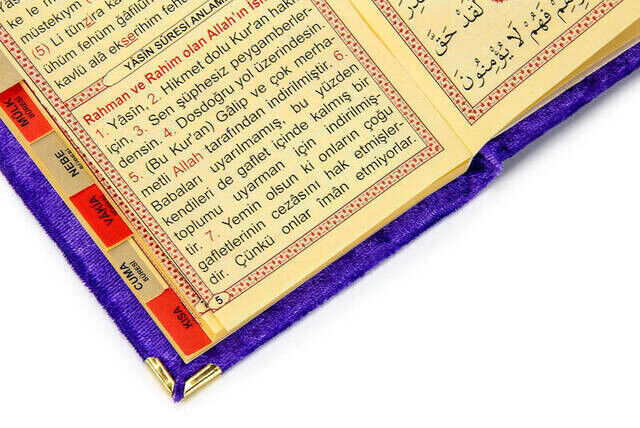 ke le m
müstekıym
(5) Li tünzira ka
ühüm fehüm ğâfilûn
kavlü alâ ekserihim fehü
YÂSİN SÛRESİ ANLAMI
Rahman ve Rahim olan Allah'ın İsm
1. Yâsin, 2. Hikmet dolu Kur'an hakkı
için, 3. Sen şüphesiz peygamberler-
densin. 4. Dosdoğru yol üzerindesin.
5. (Bu Kur'an) Gâlip ve çok merha-
metli Allah tarafından indirilmiştir. 6.
Babaları uyarılmamış, bu yüzden
kendileri de gaflet içinde kalmış bir
toplumu uyarman için indirilmiş-
tir. 7. Yemin olsun ki onların çoğu
gafletlerinin cezâsını hak etmişler-
dir. Çünkü onlar îmân etmiyorlar.
5
لَقَدْ حَقَّ
فَهُمْ لَا يُؤْمِنُونَ
MÜLK
SÛRESİ
NEBE
SÛRESİ
VÂKIA
CUMA
SÛRESİ
KISA